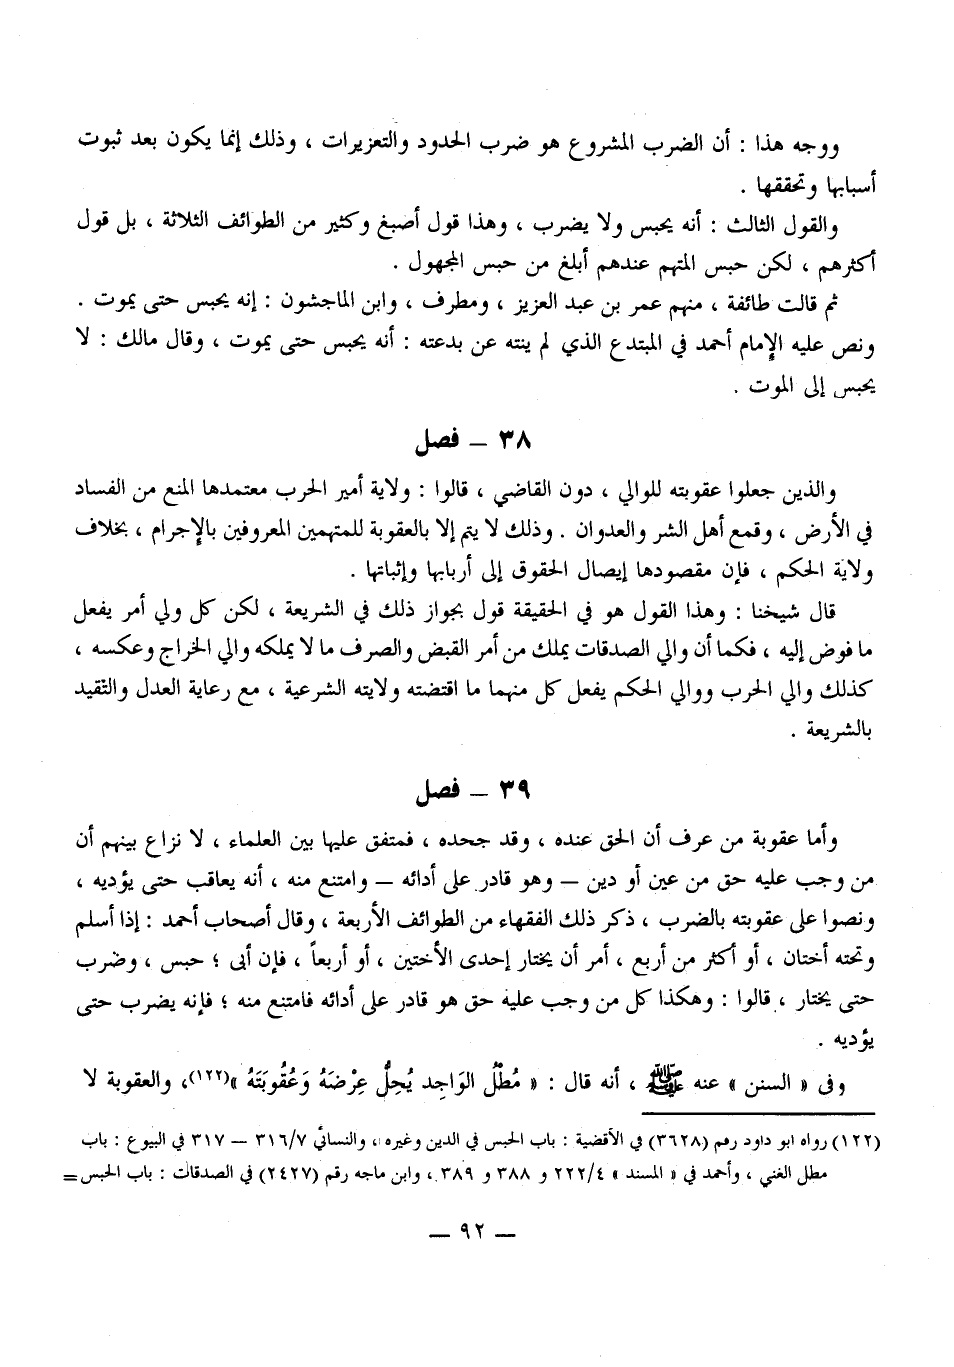 ووجه هذا : أن الضرب المشروع هو ضرب الحدود والتعزيرات ، وذلك إنما يكون بعد ثبوت
أسبابها وتحققها .
والقول الثالث : أنه يحبس ولا يضرب ، وهذا قول أصبغ وكثير من الطوائف الثلاثة ، بل قول
أكثرهم ، لكن حبس المتهم عندهم أبلغ من حبس المجهول .
ثم قالت طائفة ، منهم عمر بن عبد العزيز ، ومطرف ، وابن الماجشون : إنه يحبس حتى يموت .
ونص عليه الإمام أحمد في المبتدع الذي لم ينته عن بدعته : أنه يحبس حتى يموت ، وقال مالك : لا
يحبس إلى الموت .
٣٨ – فصل
والذين جعلوا عقوبته للوالي ، دون القاضي ، قالوا : ولاية أمير الحرب معتمدها المنع من الفساد
في الأرض ، وقمع أهل الشر والعدوان . وذلك لا يتم إلا بالعقوبة للمتهمين المعروفين بالإجرام ، بخلاف
ولاية الحكم ، فإن مقصودها إيصال الحقوق إلى أربابها وإثباتها .
قال شيخنا : وهذا القول هو في الحقيقة قول بجواز ذلك في الشريعة ، لكن كل ولي أمر يفعل
ما فوض إليه ، فكما أن والي الصدقات يملك من أمر القبض والصرف ما لا يملكه والي الخراج وعكسه ،
كذلك والي الحرب ووالي الحكم يفعل كل منهما ما اقتضته ولايته الشرعية ، مع رعاية العدل والتقيد
بالشريعة .
٣٩ – فصل
وأما عقوبة من عرف أن الحق عنده ، وقد جحده ، فمتفق عليها بين العلماء ، لا نزاع بينهم أن
من وجب عليه حق من عين أو دين – وهو قادر على أدائه – وامتنع منه ، أنه يعاقب حتى يؤديه ،
ونصوا على عقوبته بالضرب ، ذكر ذلك الفقهاء من الطوائف الأربعة ، وقال أصحاب أحمد : إذا أسلم
وتحته أختان ، أو أكثر من أربع ، أمر أن يختار إحدى الأختين ، أو أربعاً ، فإن أبى ؛ حبس ، وضرب
حتى يختار ، قالوا : وهكذا كل من وجب عليه حق هو قادر على أدائه فامتنع منه ؛ فإنه يضرب حتى
يؤديه .
وفى « السنن » عنه ﷺ ، أنه قال : « مُطْلُ الوَاجِد يُحِلُّ عِرْضَهُ وَعُقُوبَتَهُ »(١٢٢)، والعقوبة لا
(١٢٢) رواه ابو داود رقم (٣٦٢٨) في الأقضية : باب الحبس في الدين وغيره ، والنسائي ٣١٦/٧ – ٣١٧ في البيوع : باب
مطل الغني ، وأحمد في « المسند » ٢٢٢/٤ و ٣٨٨ و ٣٨٩ ، وابن ماجه رقم (٢٤٢٧) في الصدقات : باب الحبس =
– ٩٢ –